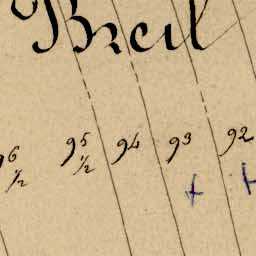 Breil
96 1/2 95 1/2 94 93 92